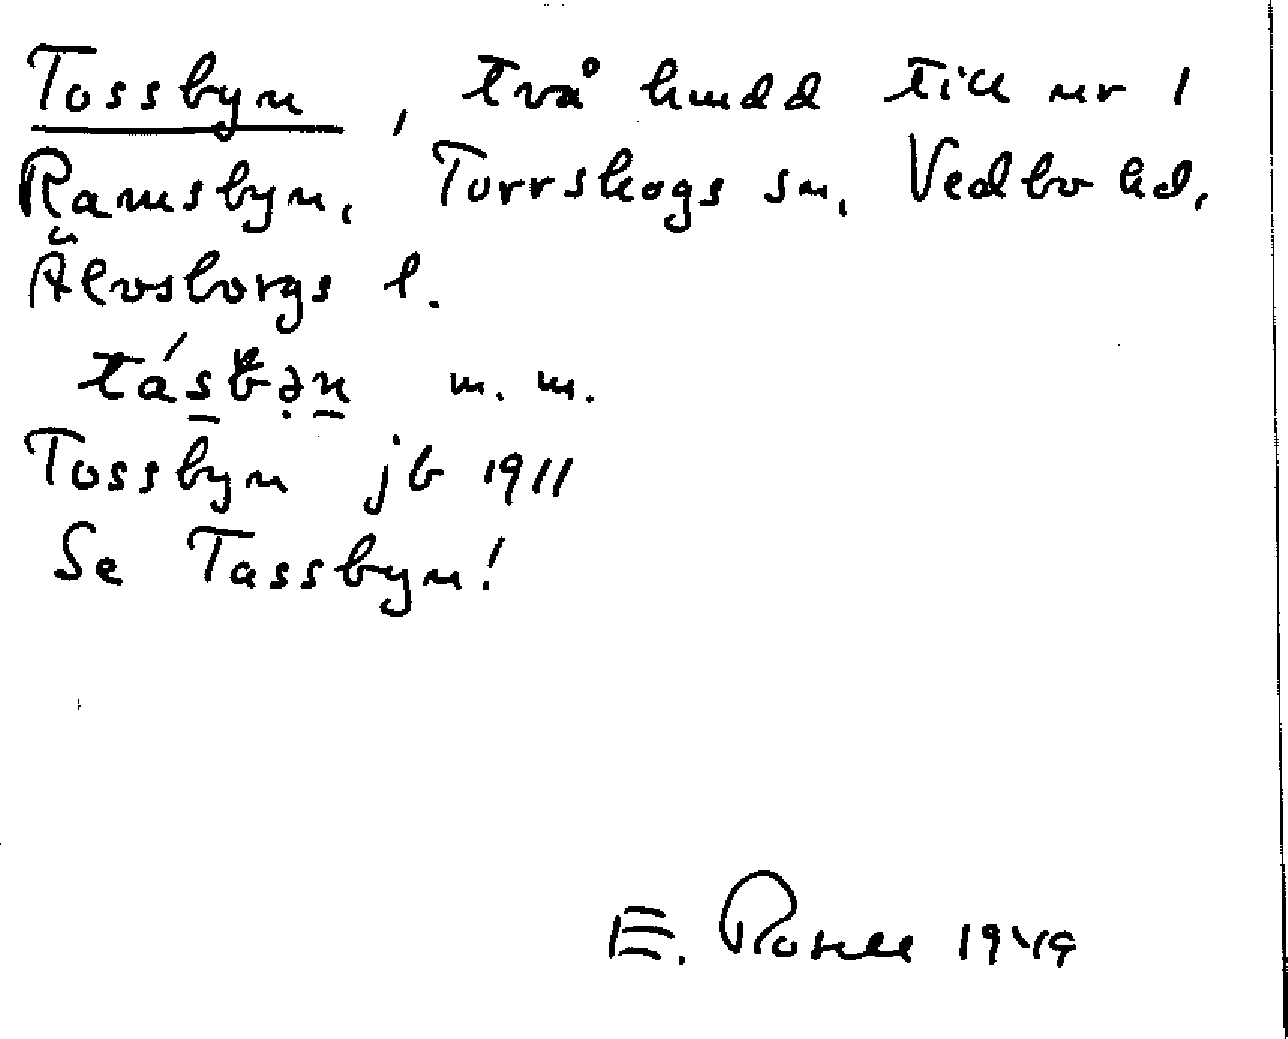 Tossbyn, två hmdd till nr 1
Ramsbyn, Torrskogs sn, Vedbo hd,
Älvsborgs l.
m. m.
Tossbyn jb 1911
Se Tassbyn!
E. Rosell 1949